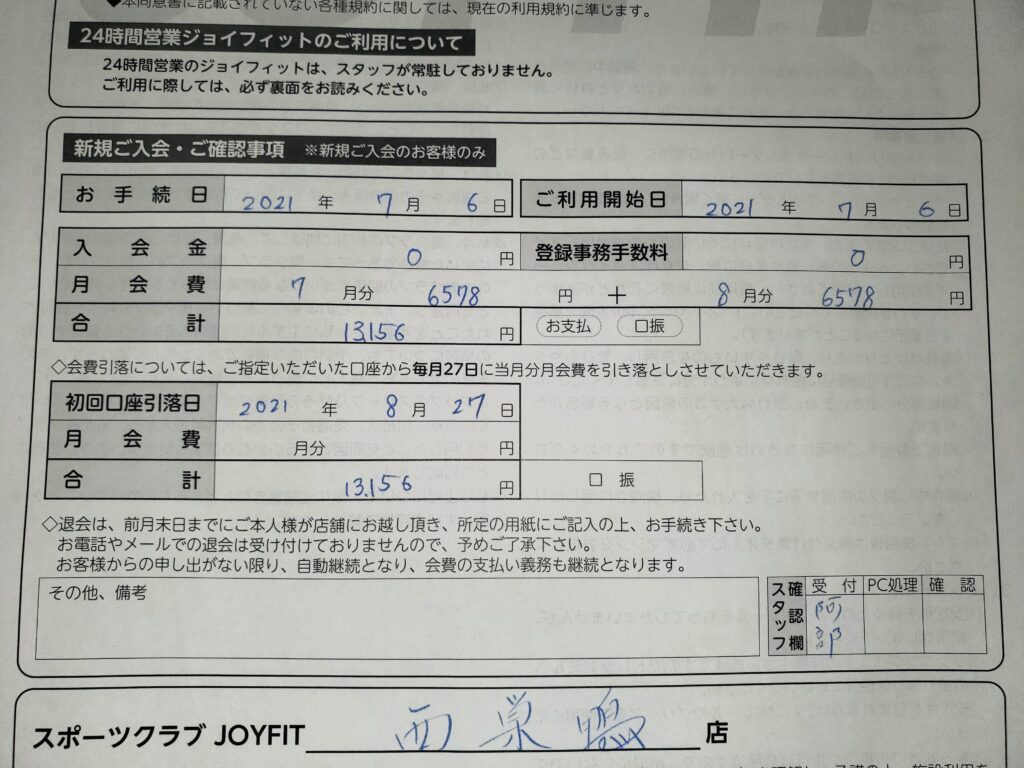 ◆本同意書に記載されていない各種規約に関しては、現在の利用規約に準じます。
24時間営業ジョイフィットのご利用について
24時間営業のジョイフィットは、スタッフが常駐しておりません。
ご利用に際しては、必ず裏面をお読みください。
新規ご入会・ご確認事項 ※新規ご入会のお客様のみ
お手続日 2021 年 7 月 6 日 ご利用開始日 2021 年 7 月 6 日
入会金 0 円 登録事務手数料 0 円
月会費 7 月分 6578 円 + 8 月分 6578 円
合計 13,156 円 お支払 口振
◇会費引落については、ご指定いただいた口座から毎月27日に当月分月会費を引き落としさせていただきます。
初回口座引落日 2021 年 8 月 27 日
月会費 月分 円
合計 13,156 円 口振
◇退会は、前月末日までにご本人様が店舗にお越し頂き、所定の用紙にご記入の上、お手続き下さい。
お電話やメールでの退会は受け付けておりませんので、予めご了承下さい。
お客様からの申し出がない限り、自動継続となり、会費の支払い義務も継続となります。
その他、備考
スタッフ確認欄 受付 PC処理 確認
阿部
スポーツクラブ JOYFIT 西巣鴨 店